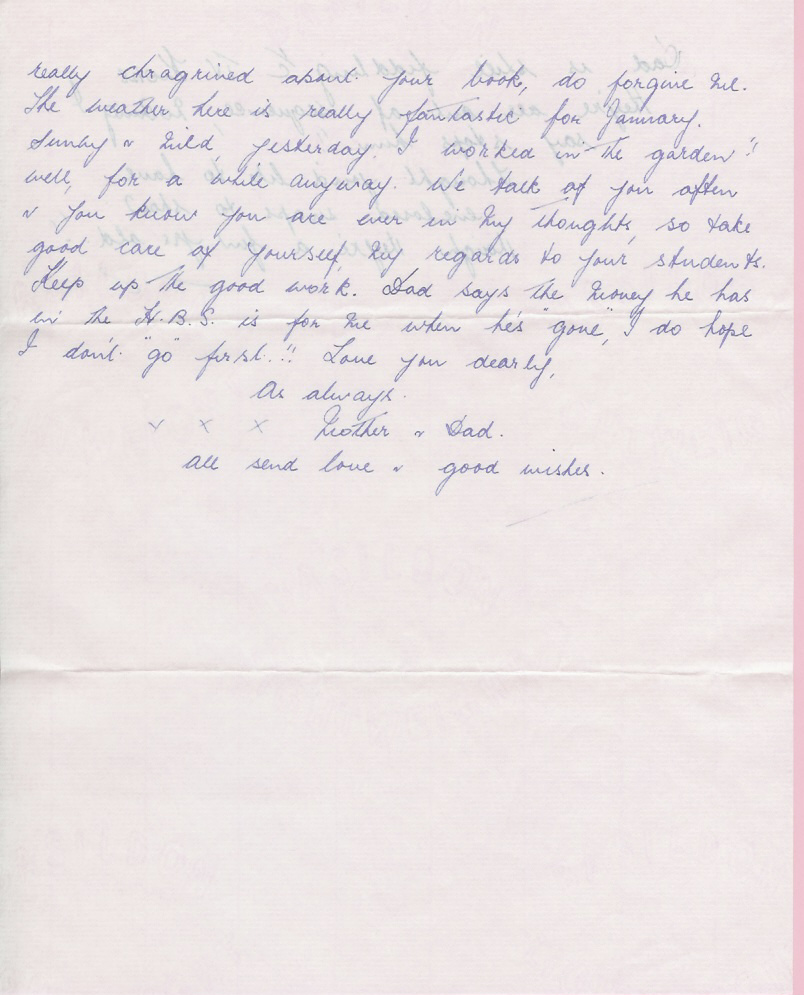 really chragrined about your book, do forgive me.
The weather here is really fantastic for January.
Sunny & mild yesterday. I worked in the garden!!
well, for a while anyway. We talk of you often
& you know you are ever in my thoughts, so take
good care of yourself, my regards to your students.
Keep up the good work. Dad says the money he has
in the H.B.S. is for me when he's "gone", I do hope
I don't "go" first..!! Love you dearly,
As always.
x x x Mother & Dad.
All send love & good wishes.